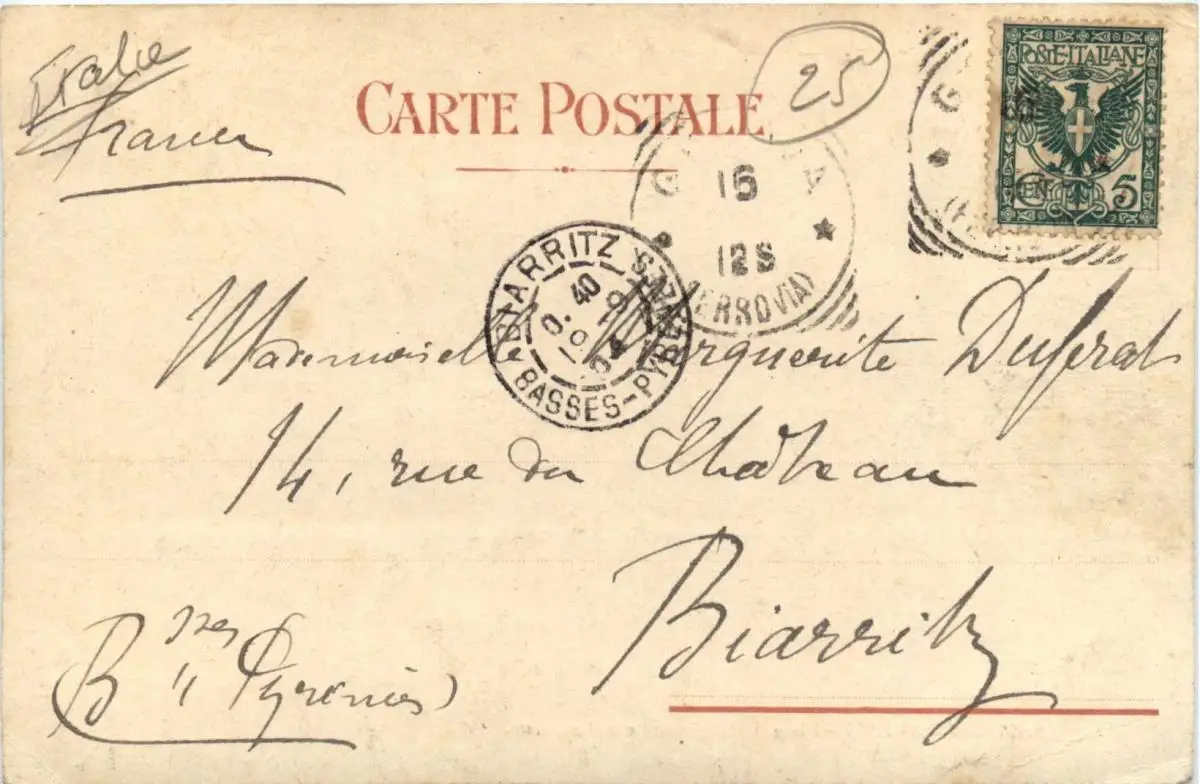 Italie
France
CARTE POSTALE
25
POSTE·ITALIANE
CEN. 5
16
12S
(FERROVIA)
BIARRITZ
40
04
BASSES-PYRÉNÉES
Mademoiselle Marguerite Duferat
14, rue du Château
Biarritz
(Bsses Pyrénées)